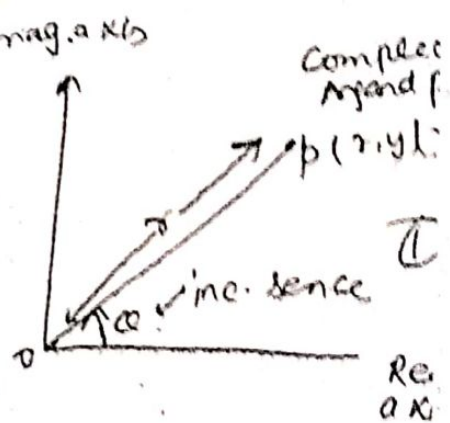 mag.axis
Complex
Argand p
p(x,y)
r
inc. sence
0
Re.
axi